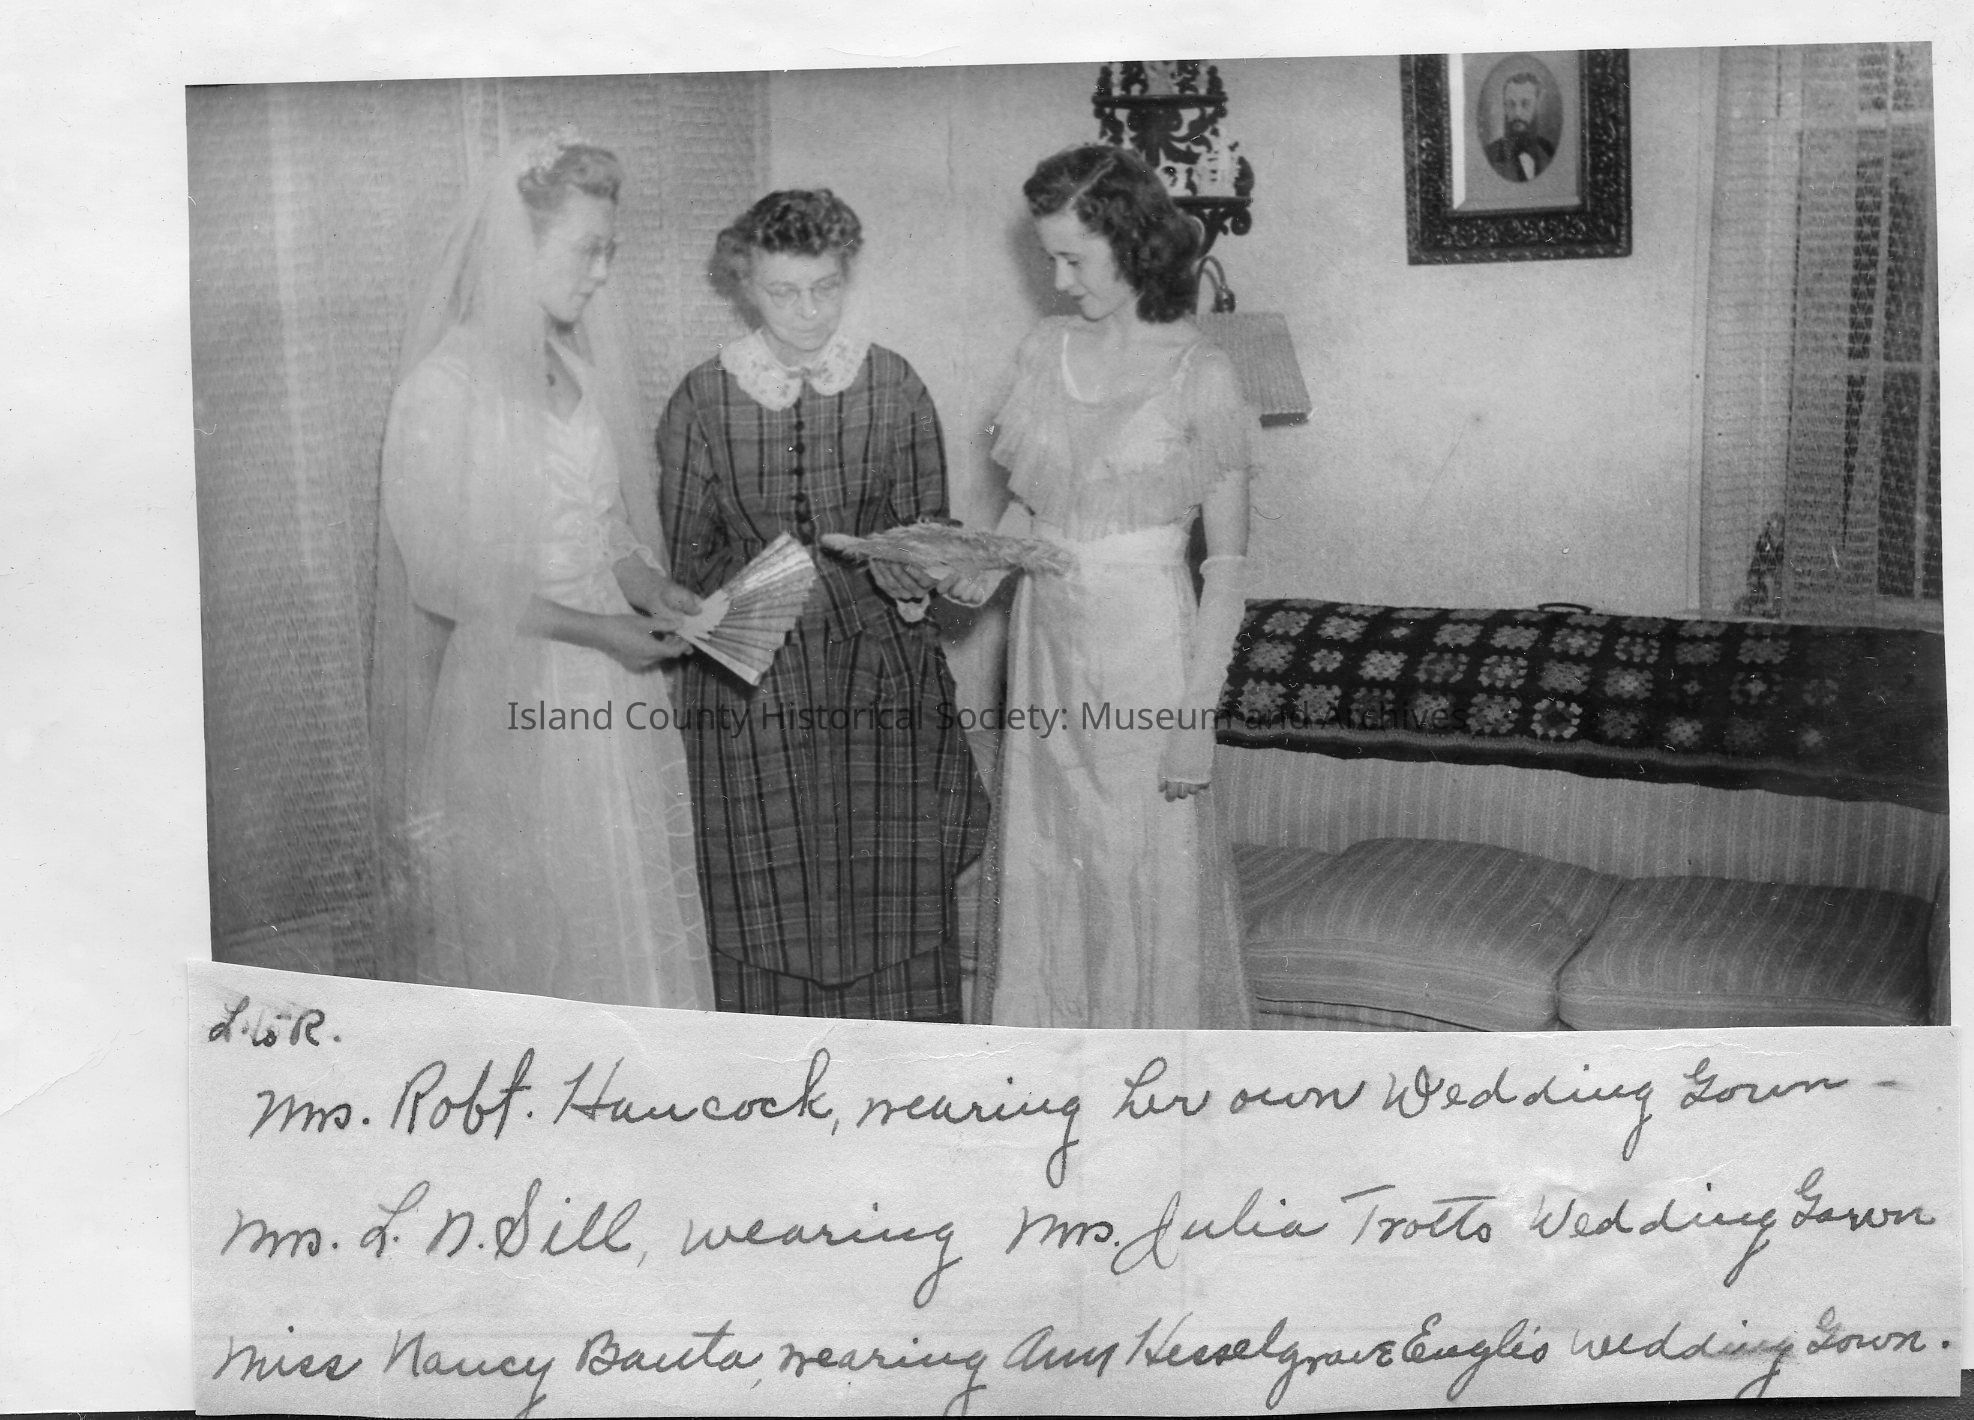 Island County Historical Society: Museum and Archives
L. to R.
Mrs. Robt. Hancock, wearing her own Wedding Gown -
Mrs. L. N. Sill, wearing Mrs. Julia Trotts Wedding Gown
Miss Nancy Bauta, wearing Amy Hesselgrave Engle's Wedding Gown.